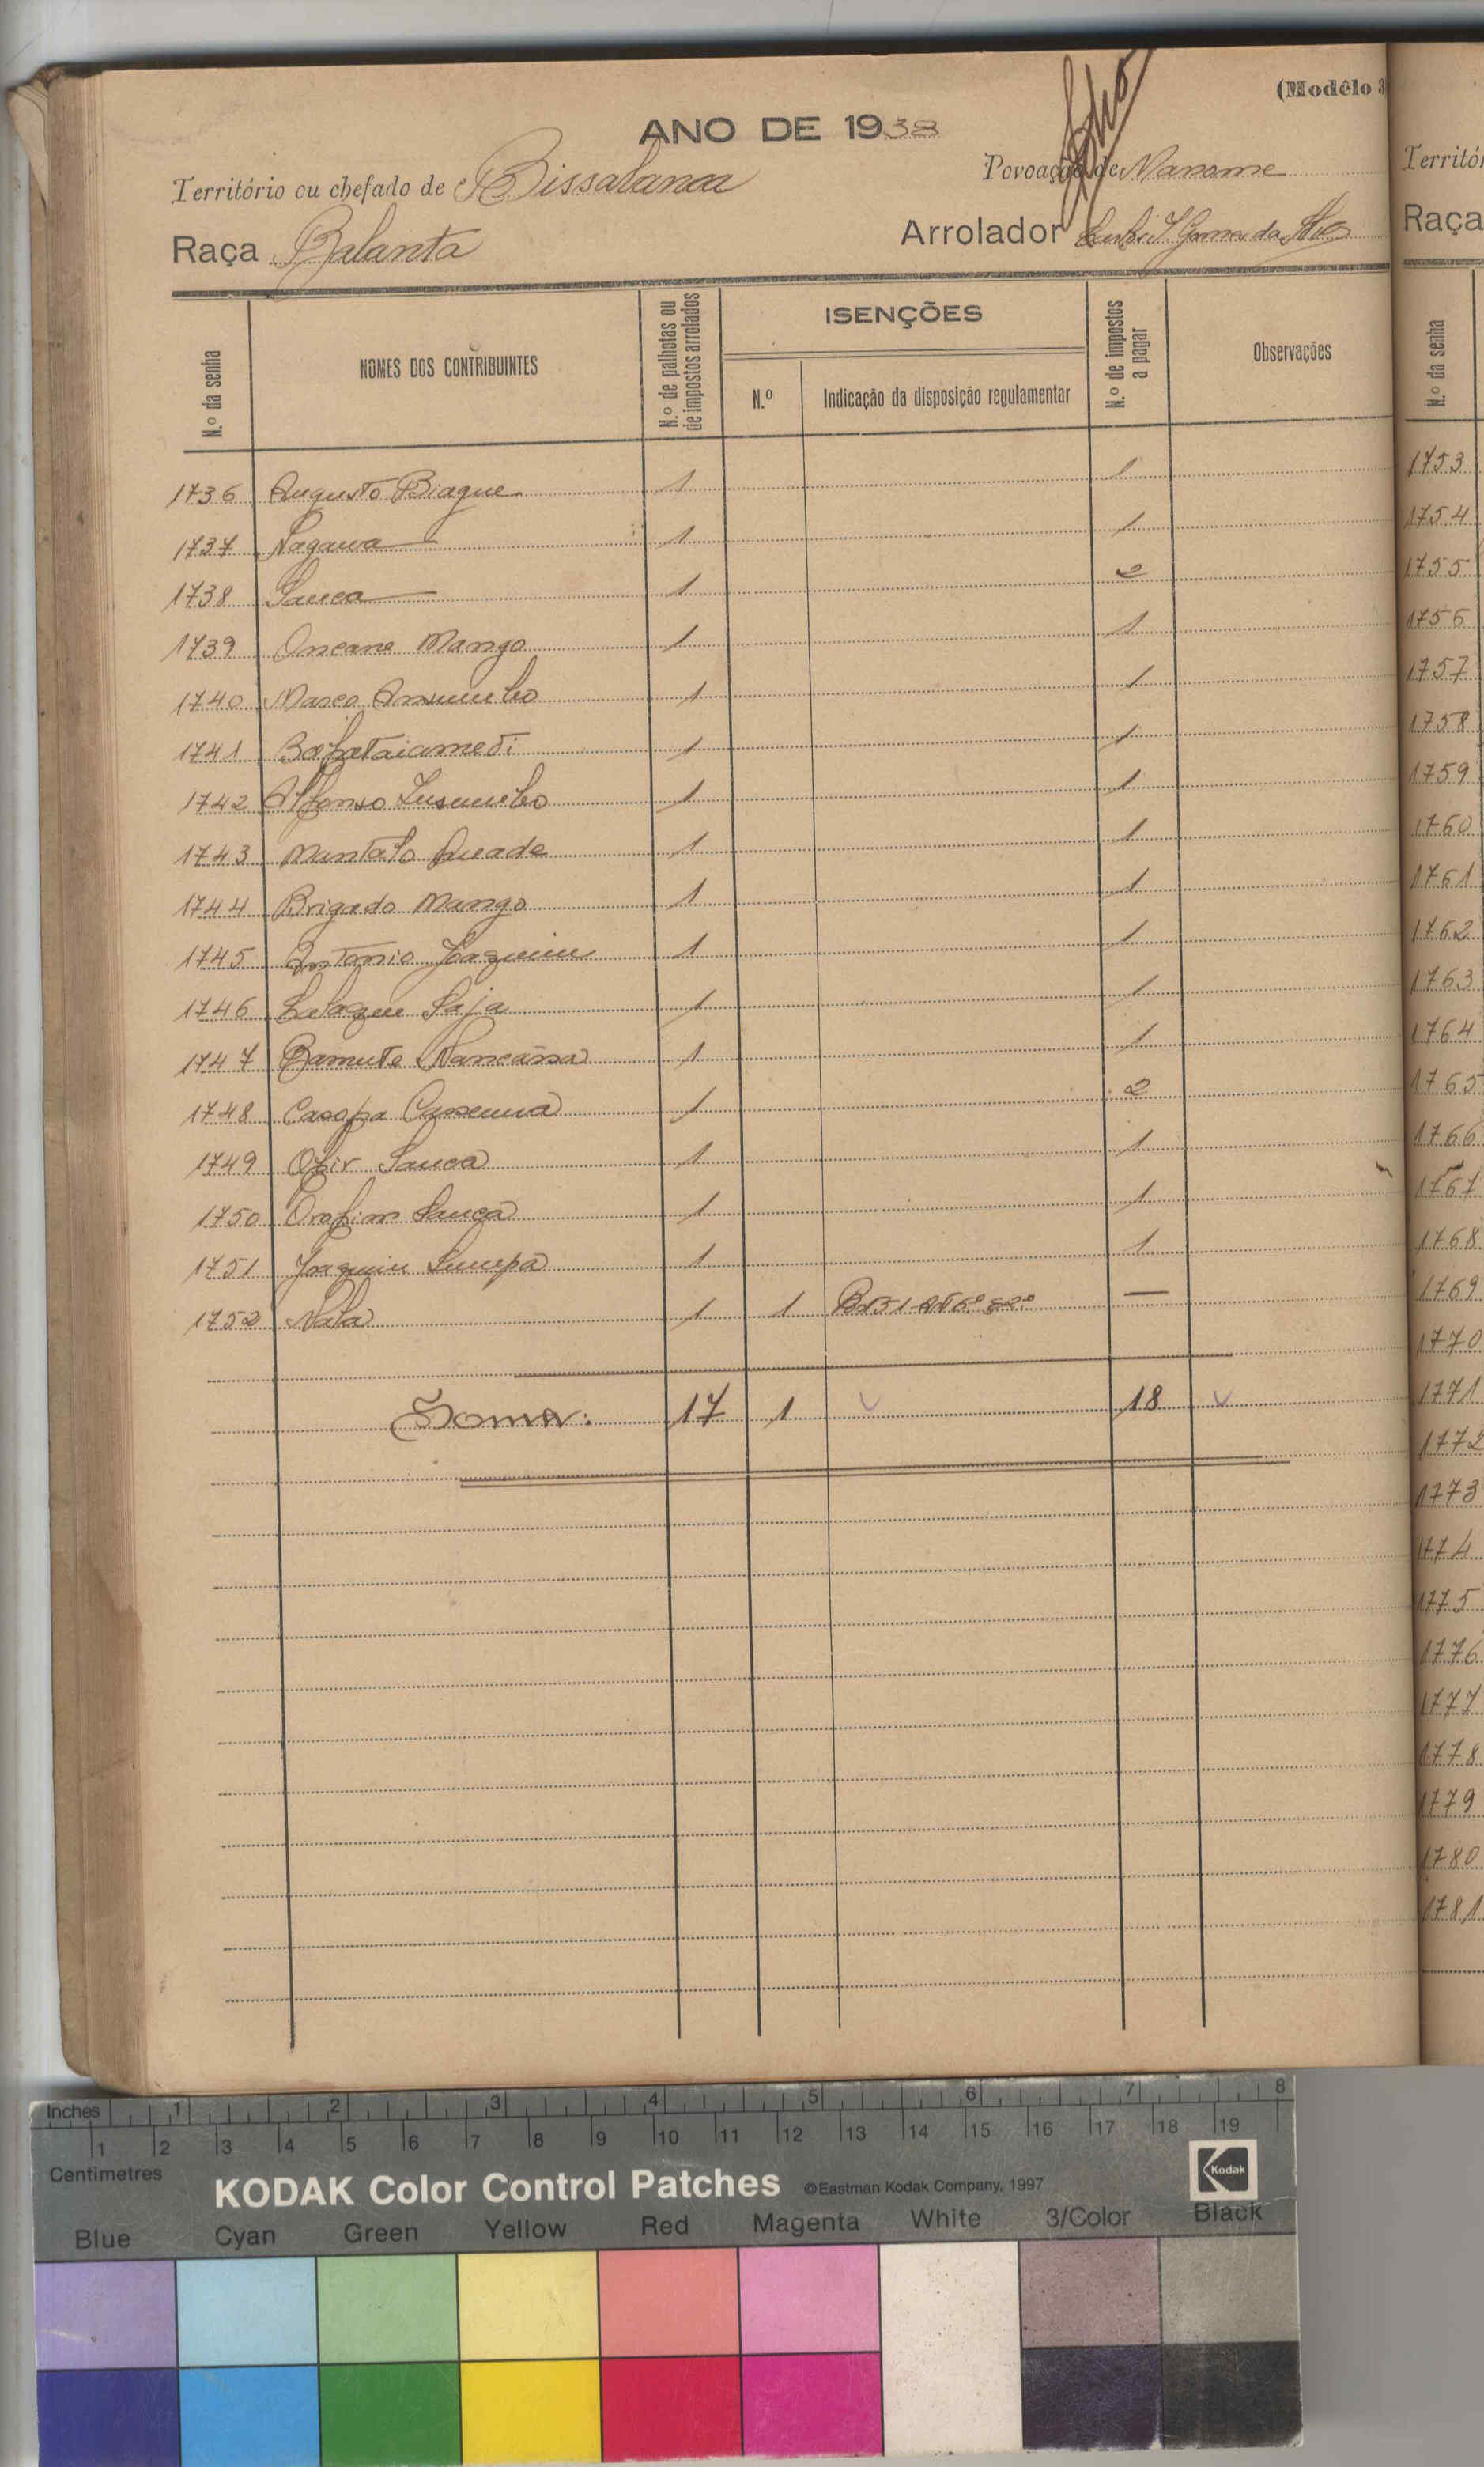 (Modêlo 3
ANO DE 1938
Território ou chefado de Bissalanca
Povoação de Naname
Raça Balanta
Arrolador Gomes da
N.º da senha
NOMES DOS CONTRIBUINTES
N.º de palhotas ou de impostos arrolados
ISENÇÕES
N.º
Indicação da disposição regulamentar
N.º de impostos a pagar
Observações
1736 Augusto Biague 1 1
1737 1 1
1738 Sanca 1 2
1739 Oncane Mango 1 1
1740 1 1
1741 1 1
1742 Alfonso 1 1
1743 Mantalo Quade 1 1
1744 Brigado Mango 1 1
1745 Antonio Joaquim 1 1
1746 1 1
1747 1 1
1748 1 2
1749 Ofir Sanca 1 1
1750 Orofim Sanca 1 1
1751 Joaquim 1 1
1752 Nala 1 1 —
Soma: 17 1 18
Territó
Raça
N.º da senha
1753
1754
1755
1756
1757
1758
1759
1760
1761
1762
1763
1764
1765
1766
1767
1768
1769
1770
1771
1772
1773
1774
1775
1776
1777
1778
1779
1780
1781
Inches 1 2 3 4 5 6 7 8
1 2 3 4 5 6 7 8 9 10 11 12 13 14 15 16 17 18 19
Centimetres
KODAK Color Control Patches ©Eastman Kodak Company, 1997 Kodak
Blue Cyan Green Yellow Red Magenta White 3/Color Black